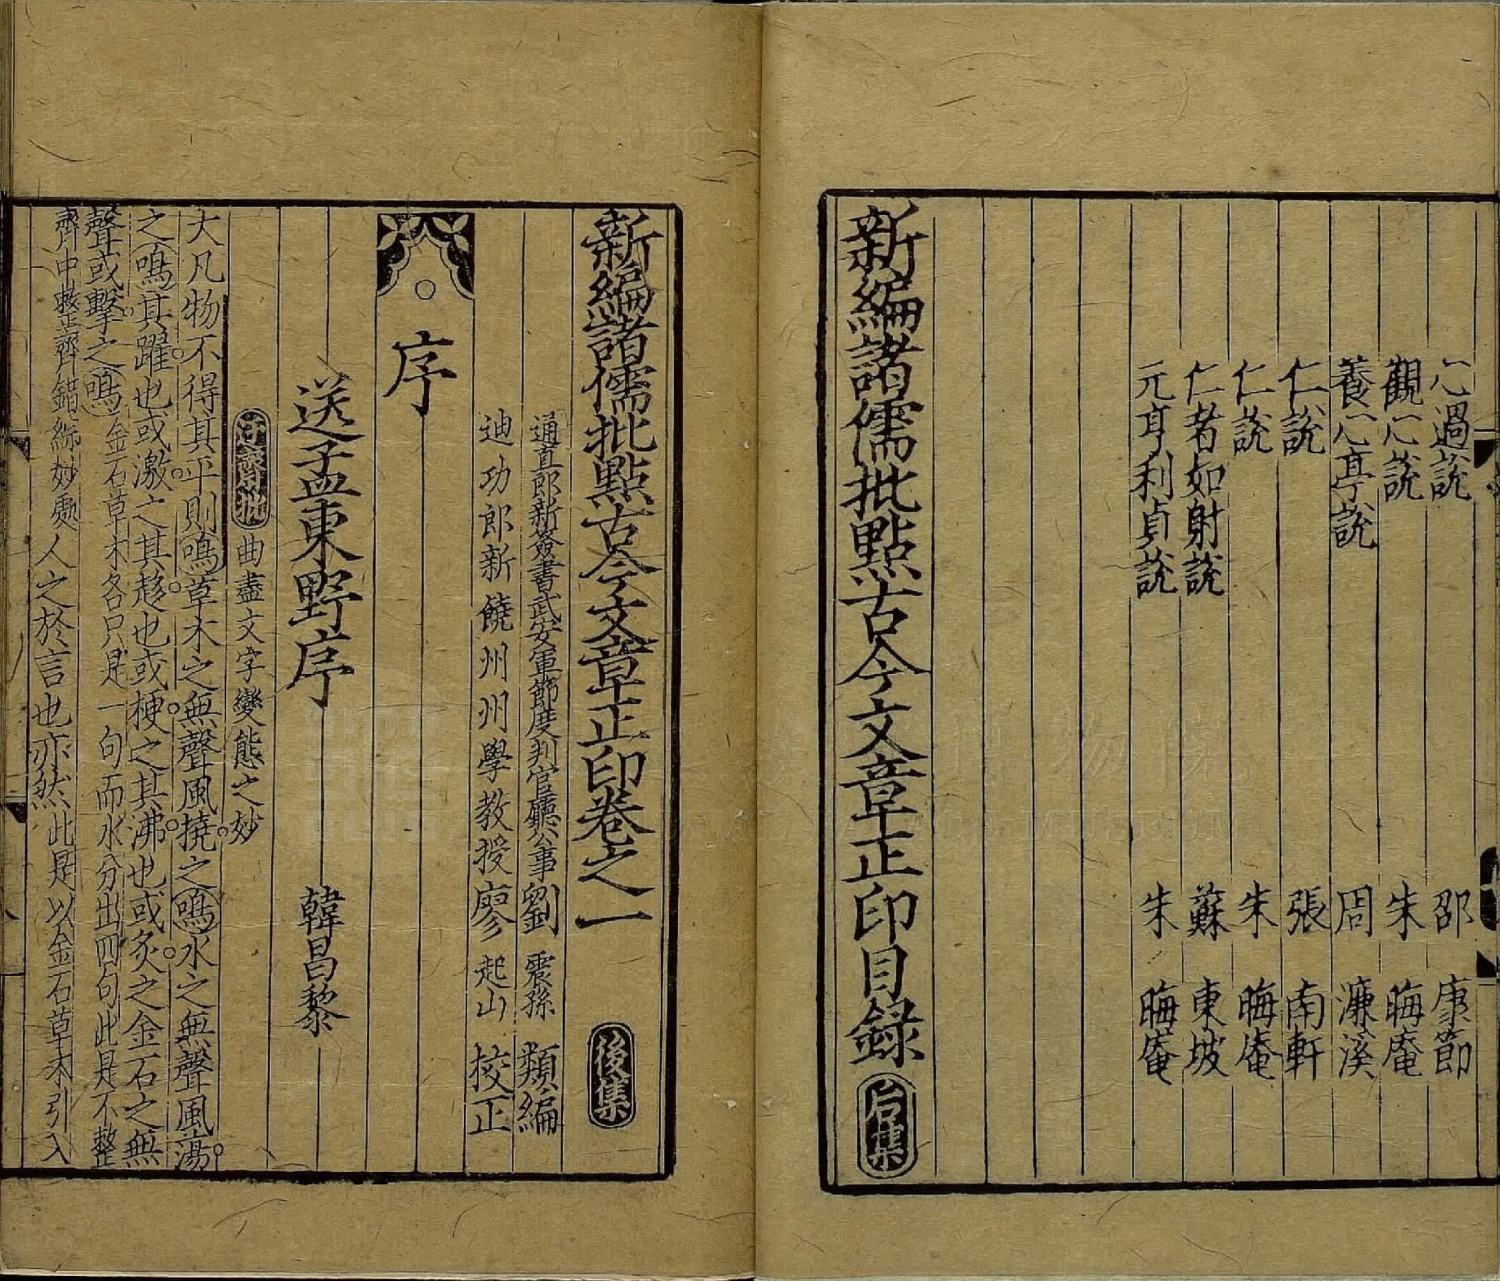 心過說 邵康節
觀心說 朱晦庵
養心亭說 周濂溪
仁說 張南軒
仁說 朱晦庵
仁者如射說 蘇東坡
元亨利貞說 朱晦庵
新編諸儒批點古今文章正印目錄 后集
新編諸儒批點古今文章正印卷之一 後集
通直郎新簽書武安軍節度判官廳公事劉 震孫 類編
迪功郎新饒州州學教授廖 起山 校正
序
送孟東野序 韓昌黎
迂齋批 曲盡文字變態之妙
大凡物不得其平則鳴草木之無聲風撓之鳴水之無聲風蕩
之鳴其躍也或激之其趍也或梗之其沸也或炙之金石之無
聲或擊之鳴金石草木各只是一句而水分出四句此是不整
齊中整齊錯綜妙處人之於言也亦然此是以金石草木引入